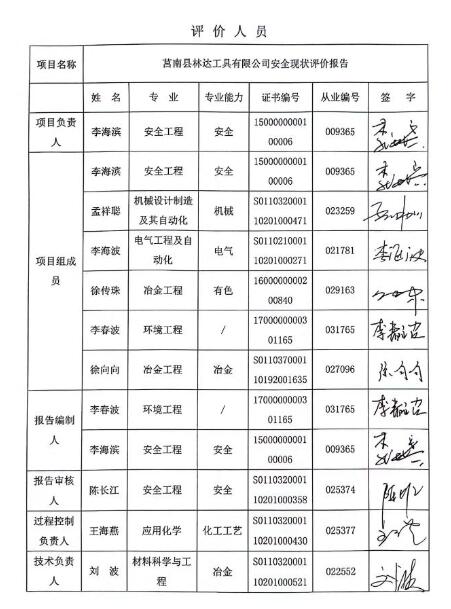 评 价 人 员
项目名称 莒南县林达工具有限公司安全现状评价报告
姓 名 专 业 专业能力 证书编号 从业编号 签 字
项目负责人 李海滨 安全工程 安全 1500000000100006 009365
项目组成员 李海滨 安全工程 安全 1500000000100006 009365
孟祥聪 机械设计制造及其自动化 机械 S011032000110201000471 023259
李海波 电气工程及自动化 电气 S011021000110201000271 021781 李海波
徐传珠 冶金工程 有色 1600000000200840 029163
李春波 环境工程 / 1700000000301165 031765
徐向向 冶金工程 冶金 S011037000110192001635 027096
报告编制人 李春波 环境工程 / 1700000000301165 031765
李海滨 安全工程 安全 1500000000100006 009365
报告审核人 陈长江 安全工程 安全 S011032000110201000358 025374
过程控制负责人 王海燕 应用化学 化工工艺 S011032000110201000430 025377
技术负责人 刘 波 材料科学与工程 冶金 S011032000110201000521 022552 刘波